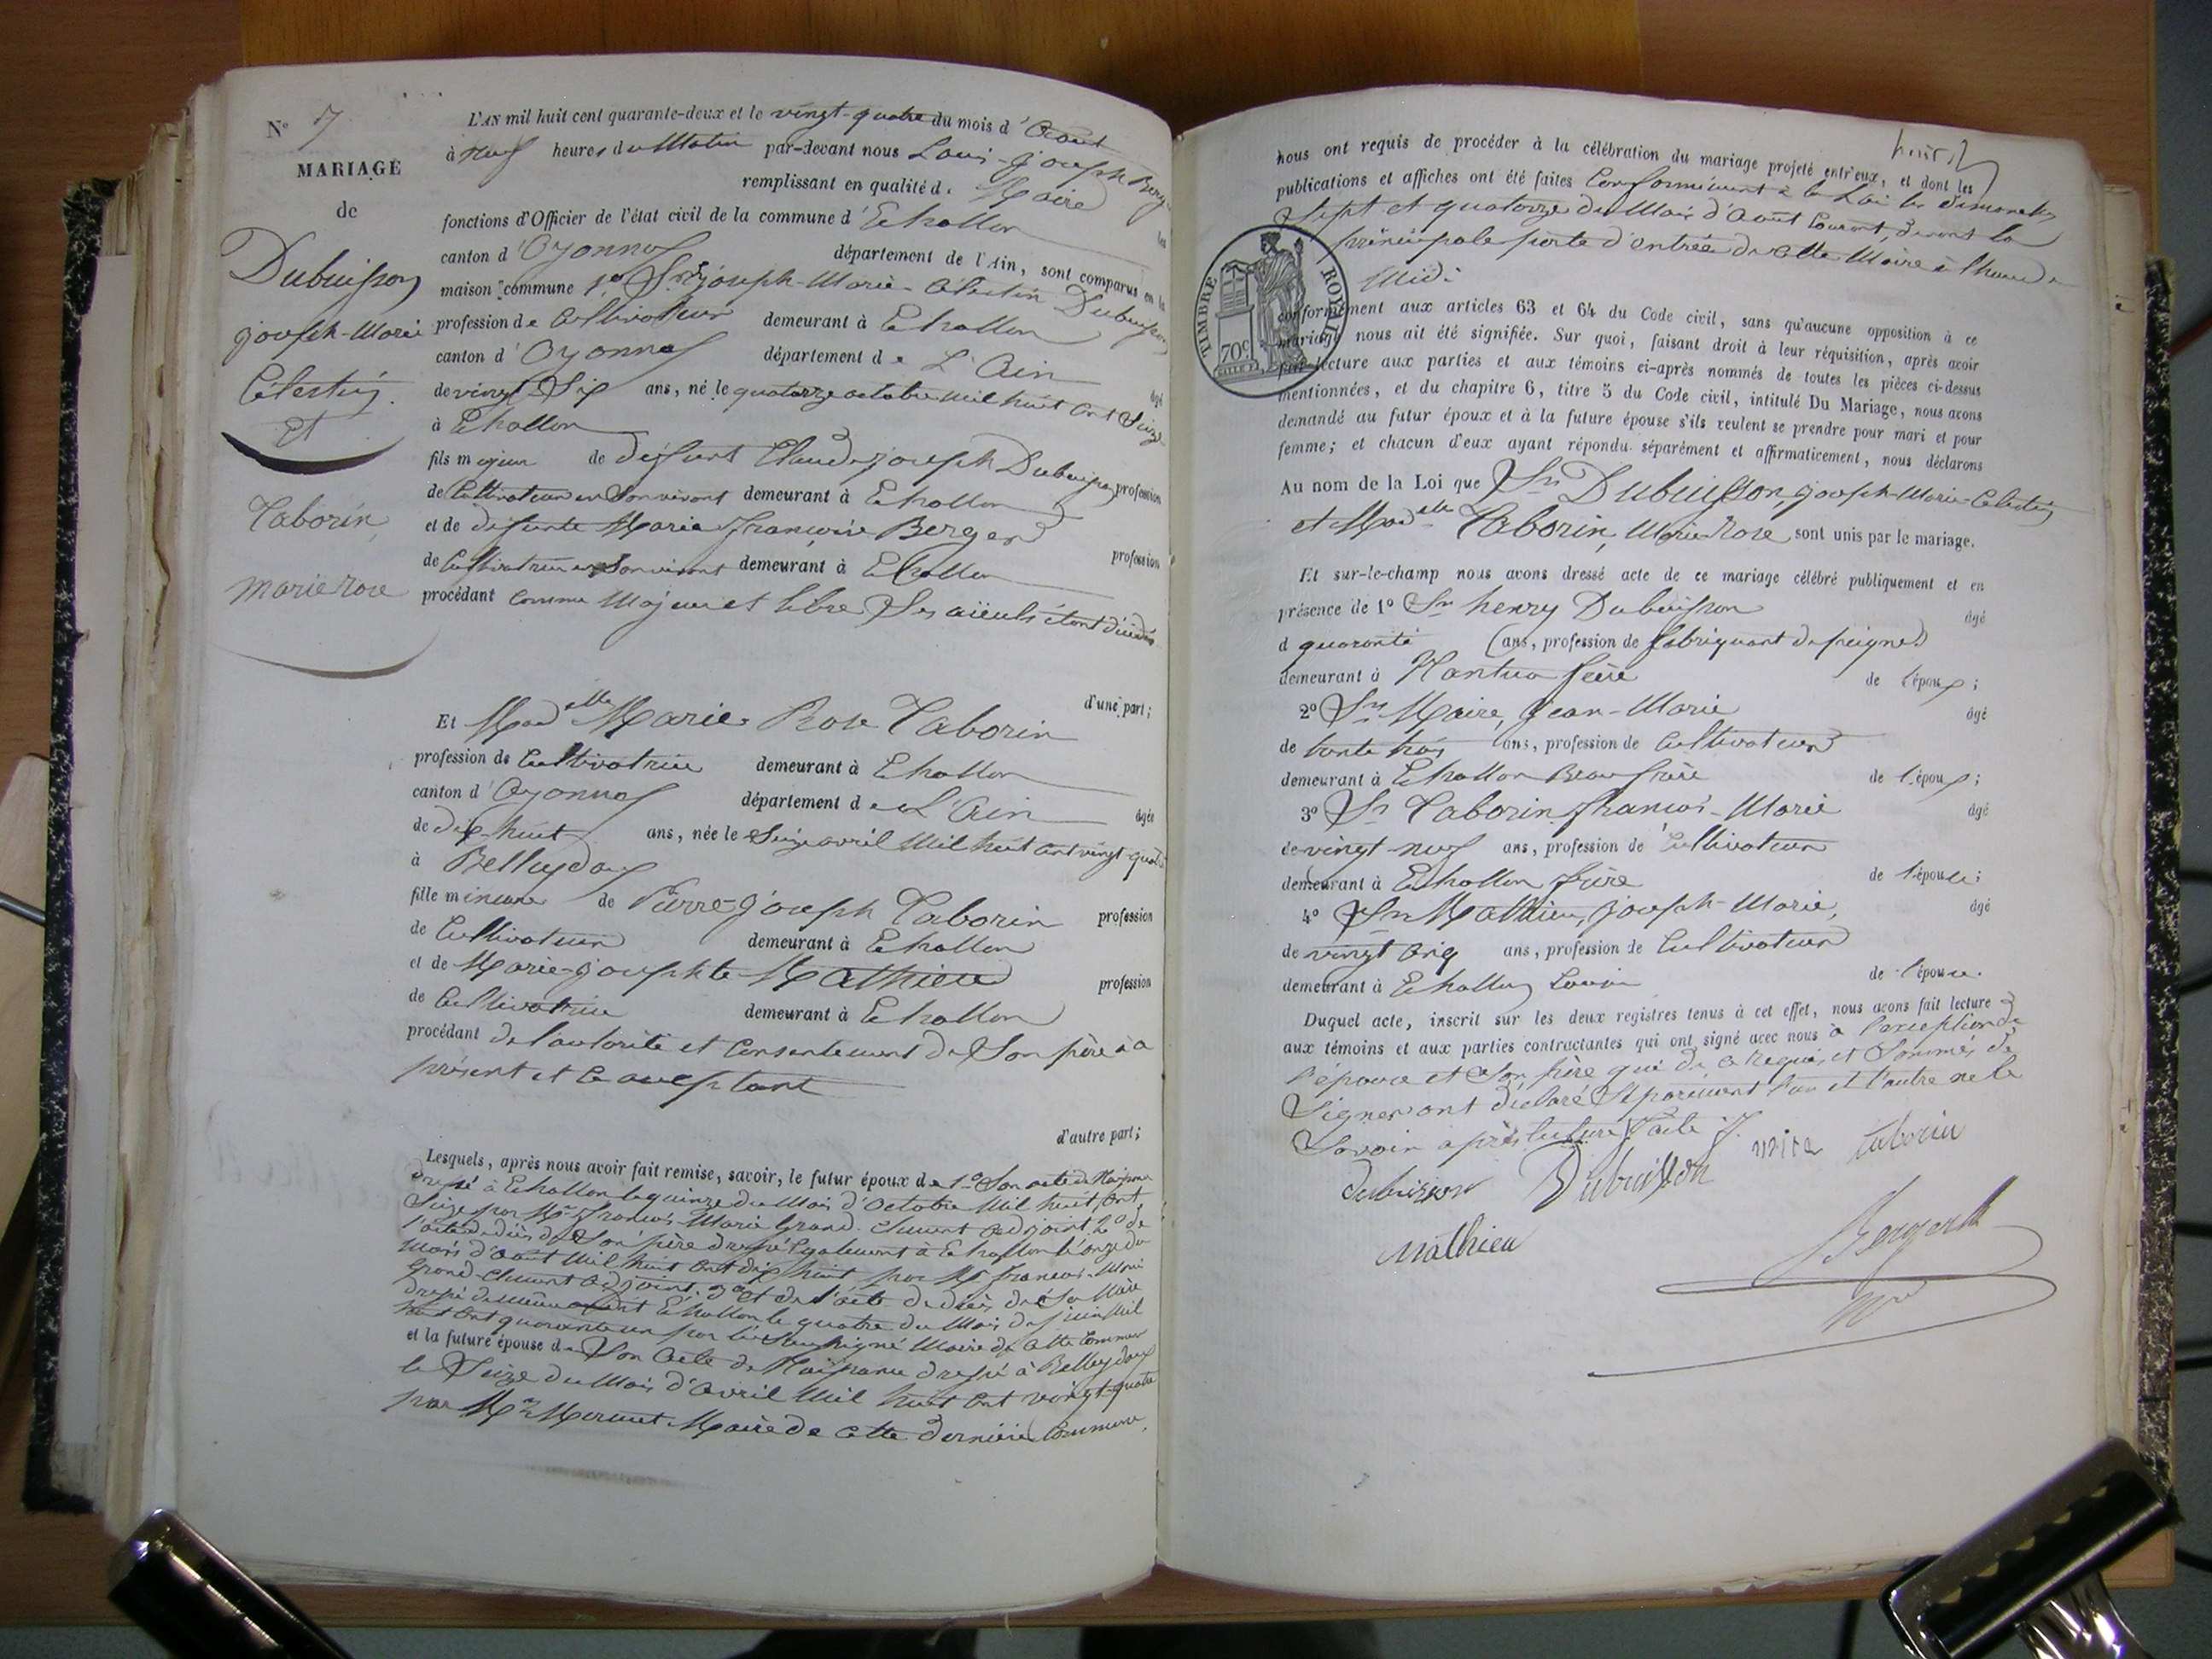 N° 7
MARIAGE
de
Dubuisson
joseph-Marie
Célestin
Et
Taborin,
marie rose
L'AN mil huit cent quarante-deux et le vingt-quatre du mois d'Août
à neuf heures du Matin par-devant nous Louis-joseph Berg
remplissant en qualité de Maire les
fonctions d'Officier de l'état civil de la commune d'Echallon
canton d'Oyonnax département de l'Ain, sont comparus en la
maison commune 1° Sr joseph-Marie-Célestin Dubuisson
profession de Cultivateur demeurant à Echallon
canton d'Oyonnax département de L'Ain âgé
de vingt Six ans, né le quatorze octobre mil huit cent Seize
à Echallon
fils majeur de défunt Claude joseph Dubuisson profession
de Cultivateur en Son vivant demeurant à Echallon
et de défunte Marie françoise Berger profession
de Cultivatrice en Son vivant demeurant à Echallon
procédant comme Majeur et libre Ses aïeuls étant décédés
d'une part;
Et Madelle Marie Rose Taborin
profession de Cultivatrice demeurant à Echallon
canton d'Oyonnax département de L'Ain âgée
de dix-huit ans, née le Seize avril Mil huit cent vingt-quatre
à Belleydoux
fille mineure de Pierre-joseph Taborin profession
de Cultivateur demeurant à Echallon
et de Marie-josephte Mathieu profession
de Cultivatrice demeurant à Echallon
procédant de l'autorité et Consentement de Son père à ce
présent et l'acceptant
d'autre part;
Lesquels, après nous avoir fait remise, savoir, le futur époux de 1° Son acte de Naissance
dressé à Echallon le quinze du Mois d'Octobre Mil huit Cent
Seize par Mr françois-Marie Grand-clément adjoint, 2° de
l'acte de décès de Son père dressé également à Echallon l'onze du
Mois d'août Mil huit cent dix huit par Mr françois-Marie
Grand-Clément adjoint, 3° et de l'acte de décès de Sa Mère
dressé de même audit Echallon le quatre du Mois de juin Mil
huit Cent quarante un par le Soussigné Maire de cette Commune
et la future épouse de Son Acte de Naissance dressé à Belleydoux
le Seize du Mois d'Avril Mil huit Cent vingt-quatre
par Mr Mermet Maire de cette dernière Commune.
nous ont requis de procéder à la célébration du mariage projeté entr'eux, et dont les
publications et affiches ont été faites Conformément à la Loi les dimanches
Sept et quatorze du Mois d'août Courant, devant la
principale porte d'entrée de cette Mairie à l'heure de
Midi
TIMBRE ROYAL
70c
conformément aux articles 63 et 64 du Code civil, sans qu'aucune opposition à ce
mariage nous ait été signifiée. Sur quoi, faisant droit à leur réquisition, après avoir
fait lecture aux parties et aux témoins ci-après nommés de toutes les pièces ci-dessus
mentionnées, et du chapitre 6, titre 5 du Code civil, intitulé Du Mariage, nous avons
demandé au futur époux et à la future épouse s'ils veulent se prendre pour mari et pour
femme; et chacun d'eux ayant répondu séparément et affirmativement, nous déclarons
Au nom de la Loi que Sr Dubuisson, joseph-Marie-Célestin
et Madelle Taborin, Marie Rose sont unis par le mariage.
Et sur-le-champ nous avons dressé acte de ce mariage célébré publiquement et en
présence de 1° Sr henry Dubuisson âgé
d quarante ans, profession de fabriquant de peignes
demeurant à Nantua frère de l'époux;
2° Sr Maire, Jean-Marie âgé
de trente trois ans, profession de Cultivateur
demeurant à Echallon Beau frère de l'époux;
3° Sr Taborin françois-Marie âgé
de vingt-neuf ans, profession de Cultivateur
demeurant à Echallon frère de l'épouse;
4° Sr Mathieu, joseph-Marie, âgé
de vingt Cinq ans, profession de Cultivateur
demeurant à Echallon Cousin de l'épouse.
Duquel acte, inscrit sur les deux registres tenus à cet effet, nous avons fait lecture
aux témoins et aux parties contractantes qui ont signé avec nous à l'exception de
l'épouse et Son père qui de ce Requis et Sommés de
Signer ont déclaré Séparément l'un et l'autre ne le
Savoir après lecture faite
dubuisson Dubuisson taborin
Mathieu